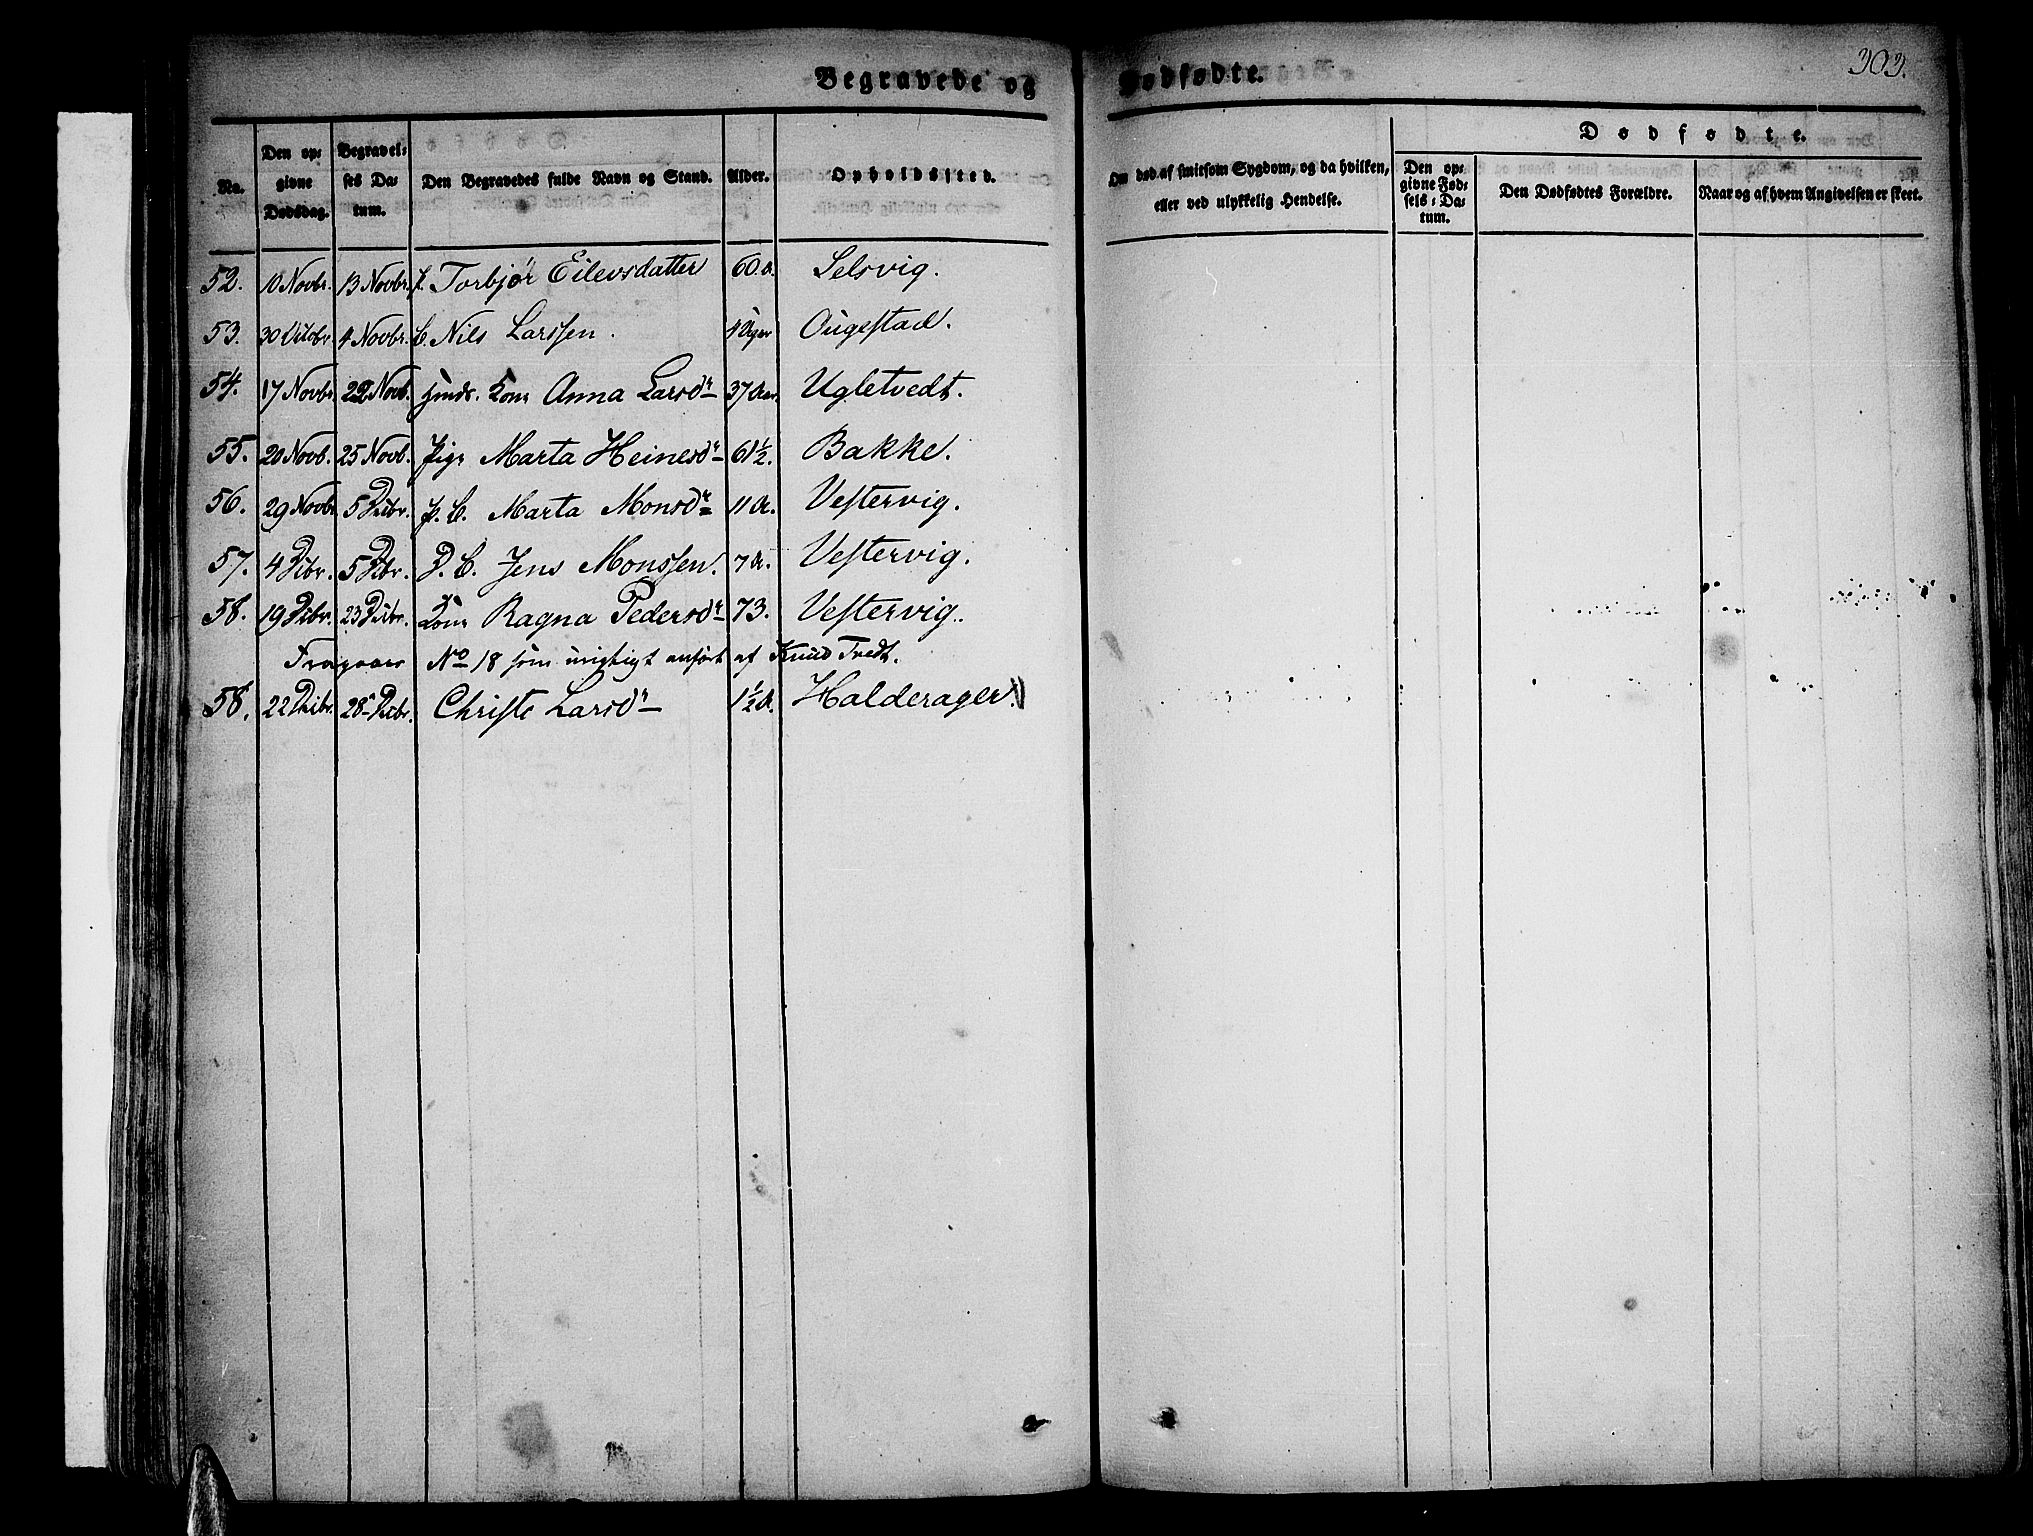 303.
Begravede og Dødfødte.
No.
Den opgivne Dødsdag.
Begravelses Datum.
Den Begravedes fulde Navn og Stand.
Alder.
Opholdssted.
Om død af smitsom Sygdom, og da hvilken, eller ved ulykkelig Hendelse.
Dødfødte.
Den opgivne Fødsels-Datum.
Den Dødfødtes Forældre.
Naar og af hvem Angivelsen er skeet.
52. 10 Novbr. 13 Novbr. Torbjør Eilevsdatter 60 A. Selsvig.
53. 30 Octobr 4 Novbr. Nils Larssen. 4 Uger Ougestad.
54. 17 Novbr. 22 Novb. Kone Anna Larsdr 37 Aar. Ugletvedt.
55. 20 Novb. 25 Novb. Pige Marta Heinesdr 61½. Bakke.
56. 29 Novbr 5 Dcbr. P. B. Marta Monsdr 11 A. Vestervig.
57. 4 Dcbr. 5 Dcbr. D. B. Jens Monssen. 7 A. Vestervig.
58. 19 Dcbr. 23 Dcbr. Kone Ragna Pedersdr 73. Vestervig.
No 18 som urigtigt anført af Knud Tvedt.
58. 22 Dcbr. 28 Dcbr. Christe Larsdr 1½ A. Halderager.